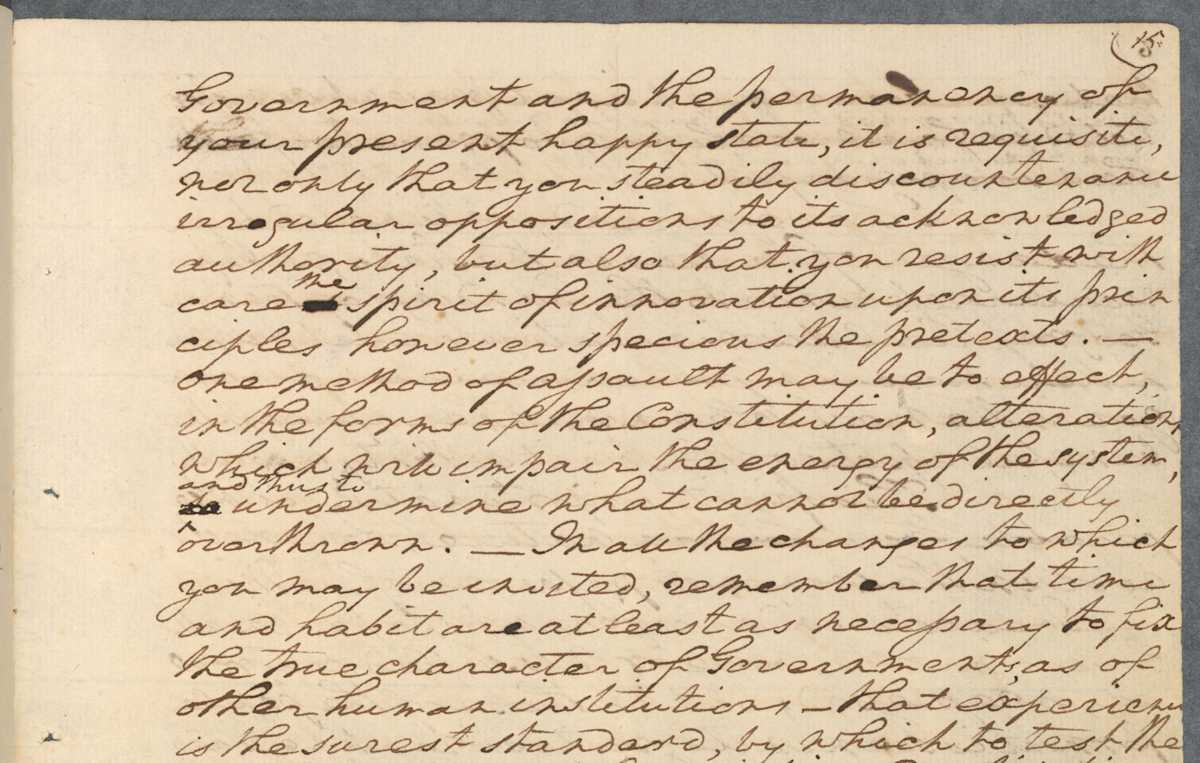 15.
Government and the permanency of
your present happy state, it is requisite,
not only that you steadily discountenance
irregular oppositions to its acknowledged
authority, but also that you resist with
care the spirit of innovation upon its prin
ciples however specious the pretexts. —
one method of assault may be to effect,
in the forms of the Constitution, alterations
which will impair the energy of the system,
and thus to
undermine what cannot be directly
overthrown. — In all the changes to which
you may be invited, remember that time
and habit are at least as necessary to fix
the true character of Governments, as of
other human institutions — that experience
is the surest standard, by which to test the